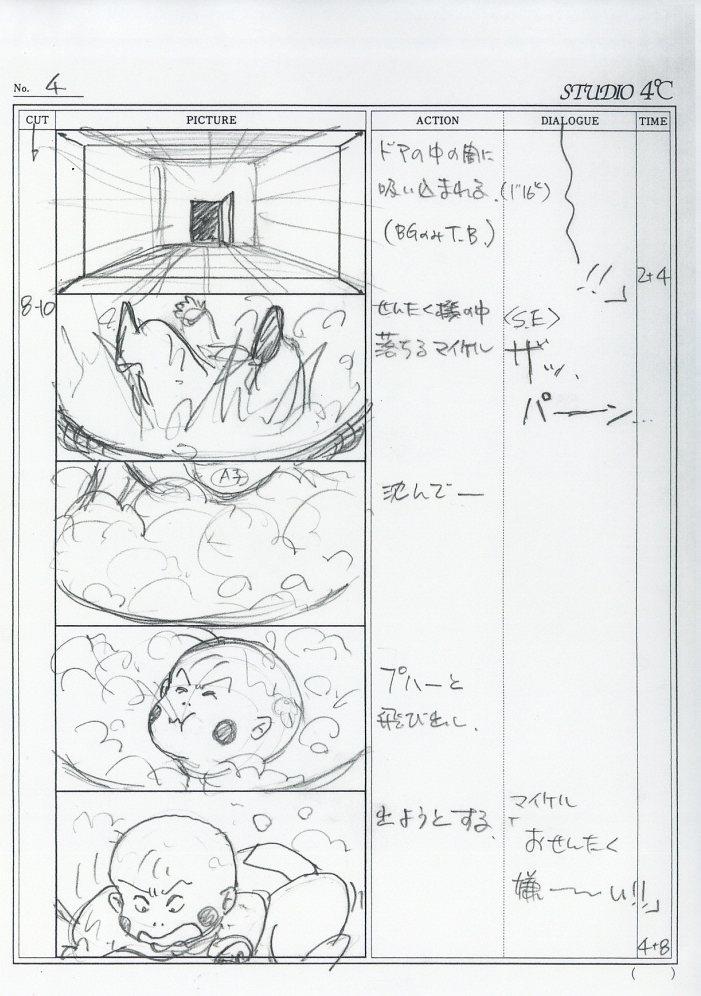 No. 4
STUDIO 4℃
CUT
PICTURE
ACTION
DIALOGUE
TIME
ドアの中の闇に
吸い込まれる.(1"16ᵏ)
(BGのみT.B.)
!!」
2+4
8-10
せんたく機の中
落ちるマイケル
<S.E>
ザッ、
パーーン…
A子
沈んでー
プハーと
飛び出し、
出ようとする、
マイケル
「
おせんたく
嫌ーーい!!」
4+8
( )